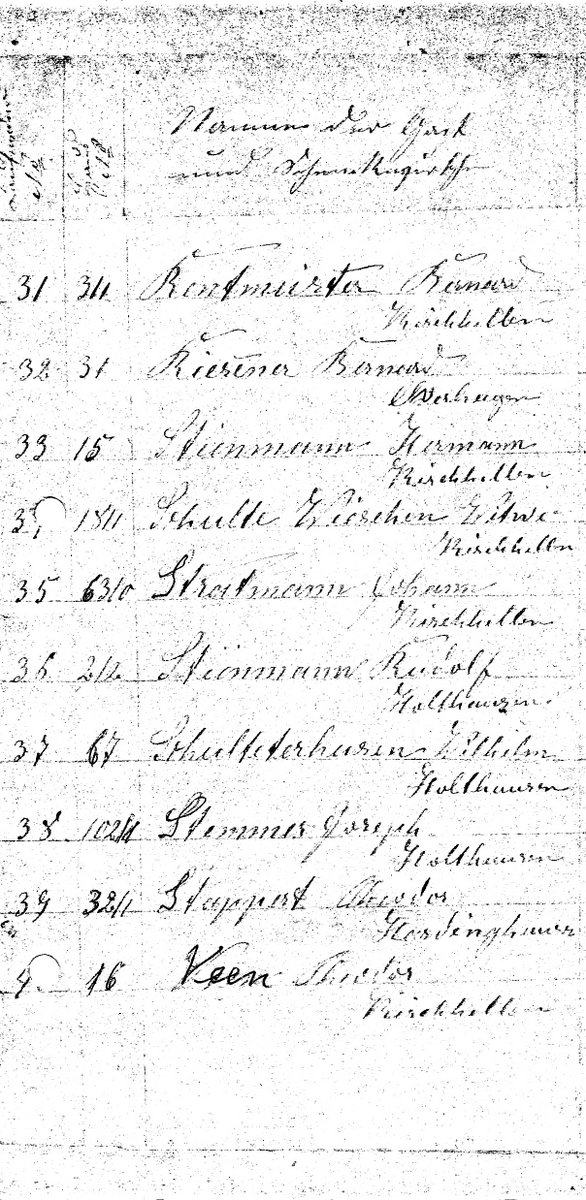 Namen der Gast
und
31 3/1 Rentmeister Bernard
Kirchhellen
32 31 Riesener Bernard
Overhagen
33 15 Steinmann Hermann
Kirchhellen
18/1 Schulte Wieschen Witwe
Kirchhellen
35 63/0 Stratmann Johann
Kirchhellen
36 2/2 Steinmann Rudolf
Holthausen
37 67 Schulteterhusen Wilhelm
Holthausen
38 102/1 Stemmer Joseph
Holthausen
39 32/1 Stappert Theodor
Hardinghausen
16 Veen Theodor
Kirchhellen